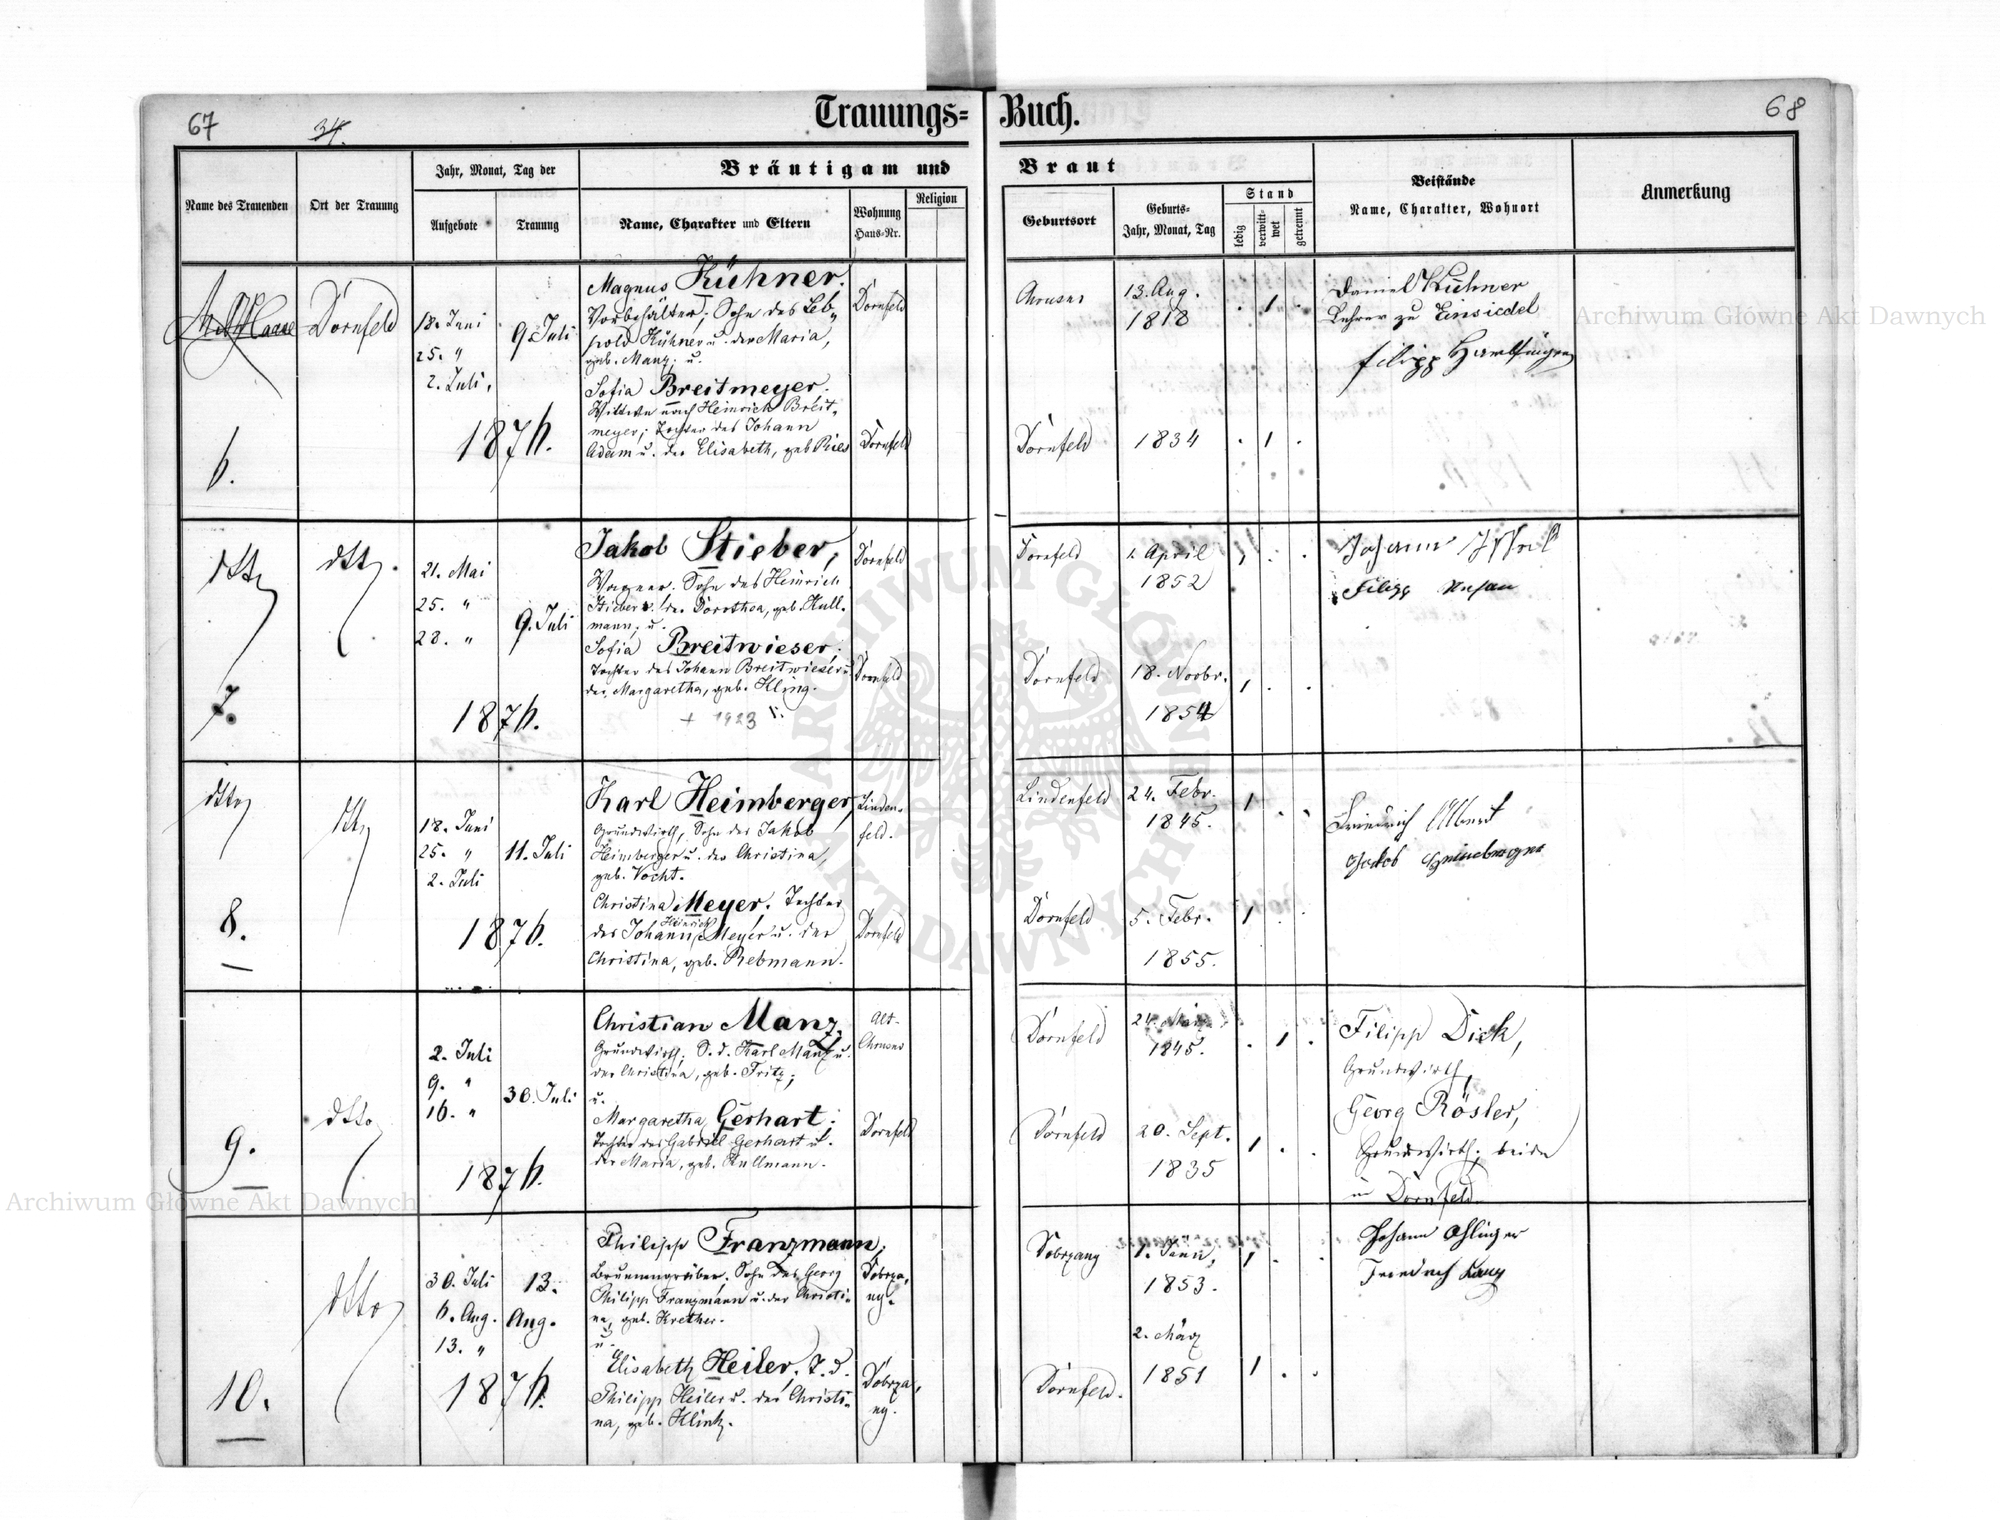 67
34.
Trauungs=
Buch.
68
Name des Trauenden
Ort der Trauung
Jahr, Monat, Tag der
Aufgebote
Trauung
Bräutigam und
Braut
Name, Charakter und Eltern
Wohnung
Haus-Nr.
Religion
Geburtsort
Geburts-
Jahr, Monat, Tag
Stand
ledig
verwitt-
wet
getrennt
Beistände
Name, Charakter, Wohnort
Anmerkung
Dornfeld
18. Juni
25. "
2. Juli,
9. Juli
1876.
6.
Magnus Kühner,
Vorbehälter; Sohn des Leo-
pold Kühner u. der Maria,
geb. Manz; u.
Sofia Breitmeyer.
Wittwe nach Heinrich Breit-
meyer; Tochter des Johann
Adam u. der Elisabeth, geb Ries
Dornfeld
Dornfeld
Chrusno
13. Aug.
1818
1
Dornfeld
1834
1
Daniel Kühner
Lehrer zu Einsiedel
Filipp
dtto
7.
dtto.
21. Mai
25. "
28. "
9. Juli
1876.
Jakob Stieber,
Wagner. Sohn des Heinrich
Stieber u. der Dorothea, geb. Kull-
mann; u.
Sofia Breitwieser,
Tochter des Johann Breitwieser u.
der Margaretha, geb. Kling.
+ 1923
Dornfeld
Dornfeld
Dornfeld
1. April
1852
1
Dornfeld
18. Novbr.
1854
1
Johann
Filipp
dtto
8.
dtto
18. Juni
25. "
2. Juli
11. Juli
1876.
Karl Heimberger,
Grundwirth, Sohn des Jakob
Heimberger u. der Christina,
geb. Vocht.
Christina Meyer, Tochter
des Johann Heinrich Meyer u. der
Christina, geb. Rebmann.
Linden-
feld.
Dornfeld
Lindenfeld
24. Febr.
1845.
1
Dornfeld
5. Febr.
1855.
1
Friedrich Albert
Jakob Heimberger
9.
dtto
2. Juli
9. "
16. "
30. Juli
1876.
Christian Manz,
Grundwirth; S. d. Karl Manz u.
der Christina, geb. Fritz;
u.
Margaretha Gerhart;
Tochter des Gabriel Gerhart u.
der Maria, geb. Kullmann.
Alt-
Chrusno
Dornfeld
Dornfeld
24. März
1845.
1
Dornfeld
20. Sept.
1835
1
Filipp Dick,
Grundwirth,
Georg Rösler,
Grundwirth; beide
in Dornfeld
10.
dtto
30. Juli
6. Aug.
13. "
13.
Aug.
1876.
Philipp Franzmann,
Brunnengräber, Sohn des Georg
Philipp Franzmann u. der Christi-
na, geb. Krether.
u.
Elisabeth Heiler, T. d.
Philipp Heiler u. der Christi-
na, geb. Klink.
Dobrza,
ny.
Dobrza,
ny.
Dobrzany
1. Jänn,
1853.
1
Dornfeld.
2. März
1851
1
Johann Ohlinger
Friedrich Lang
Archiwum Główne Akt Dawnych
Archiwum Główne Akt Dawnych
ARCHIWUM GŁÓWNE AKT DAWNYCH